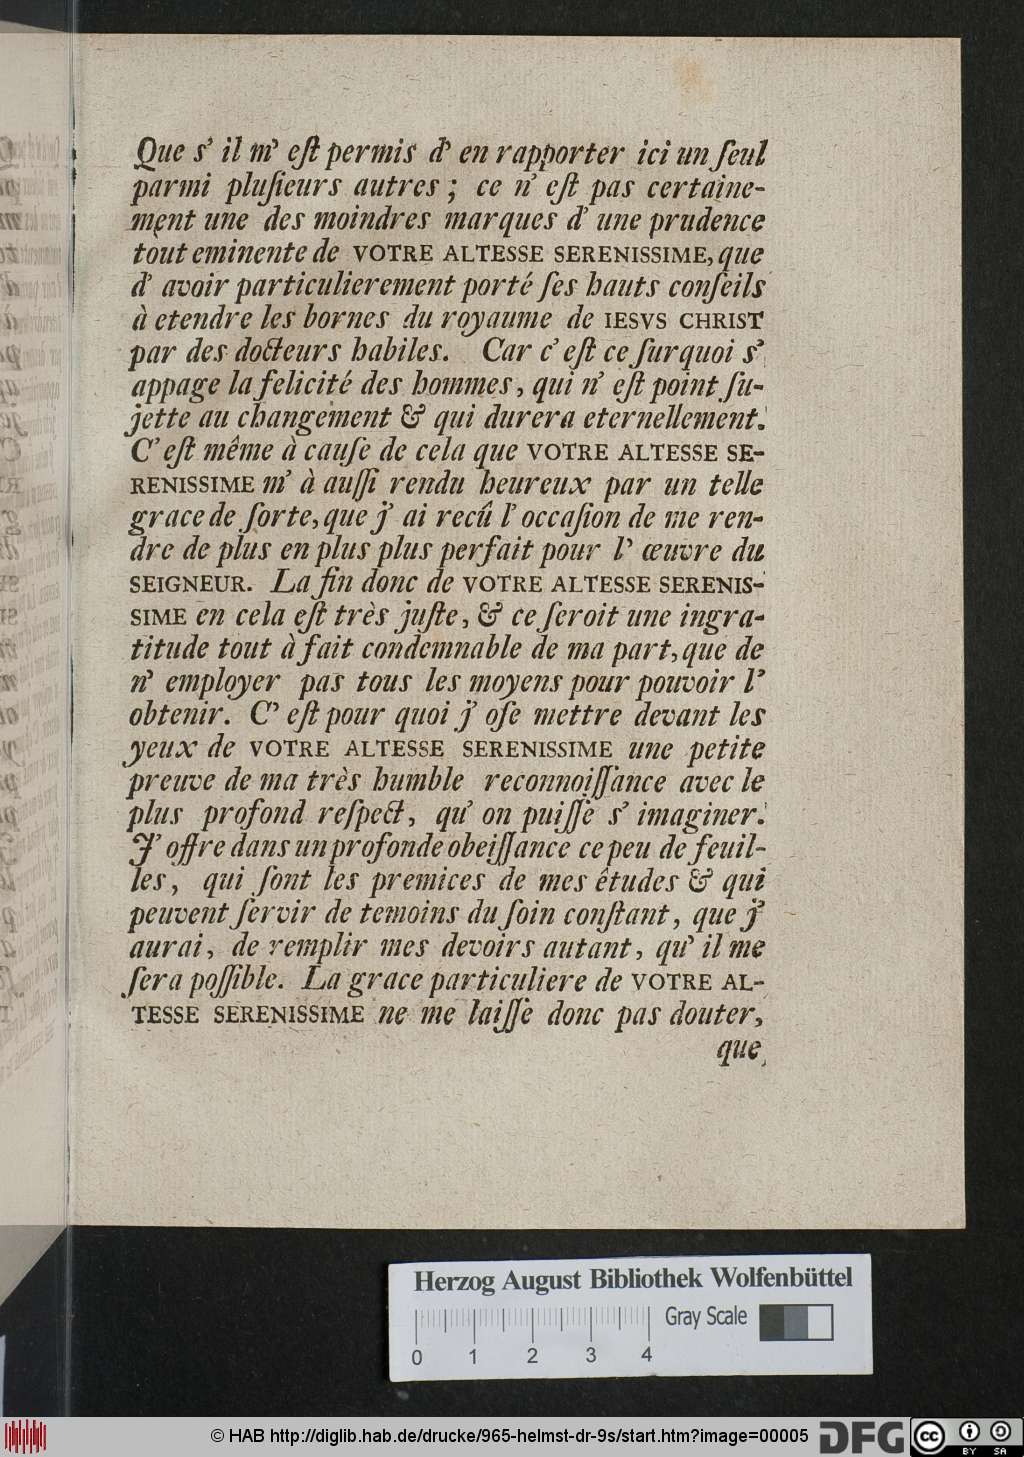 Que s' il m' eſt permis d' en rapporter ici un ſeul
parmi pluſieurs autres; ce n' eſt pas certaine-
ment une des moindres marques d' une prudence
tout eminente de VOTRE ALTESSE SERENISSIME, que
d' avoir particulierement porté ſes hauts conſeils
à etendre les bornes du royaume de IESVS CHRIST
par des docteurs habiles. Car c' eſt ce ſurquoi s'
appage la felicité des hommes, qui n' eſt point ſu-
jette au changement & qui durera eternellement.
C' eſt même à cauſe de cela que VOTRE ALTESSE SE-
RENISSIME m' à auſſi rendu heureux par un telle
grace de ſorte, que j' ai recû l' occaſion de me ren-
dre de plus en plus plus perfait pour l' œuvre du
SEIGNEUR. La fin donc de VOTRE ALTESSE SERENIS-
SIME en cela eſt très juſte, & ce ſeroit une ingra-
titude tout à fait condemnable de ma part, que de
n' employer pas tous les moyens pour pouvoir l'
obtenir. C' eſt pour quoi j' oſe mettre devant les
yeux de VOTRE ALTESSE SERENISSIME une petite
preuve de ma très humble reconnoiſſance avec le
plus profond reſpect, qu' on puiſſe s' imaginer.
J' offre dans un profonde obeiſſance ce peu de feuil-
les, qui ſont les premices de mes études & qui
peuvent ſervir de temoins du ſoin conſtant, que j'
aurai, de remplir mes devoirs autant, qu' il me
ſera poſſible. La grace particuliere de VOTRE AL-
TESSE SERENISSIME ne me laiſſe donc pas douter,
que
Herzog August Bibliothek Wolfenbüttel
Gray Scale
0 1 2 3 4
© HAB http://diglib.hab.de/drucke/965-helmst-dr-9s/start.htm?image=00005
DFG
cc BY SA